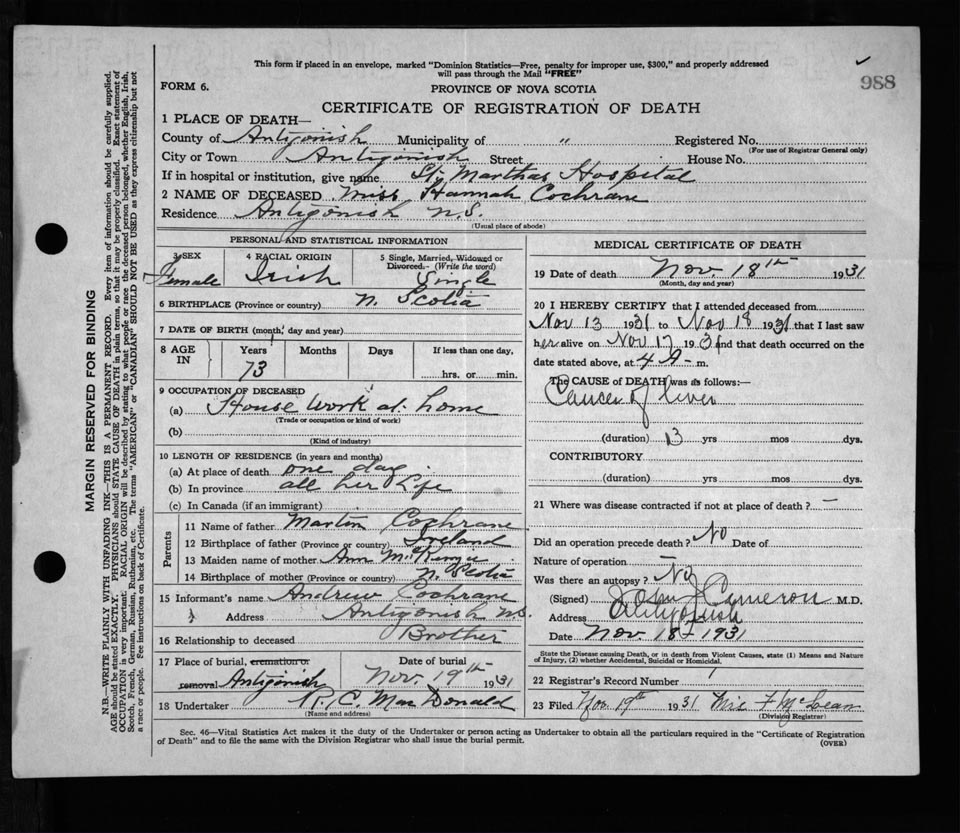 This form if placed in an envelope, marked "Dominion Statistics—Free, penalty for improper use, $300," and properly addressed
will pass through the Mail "FREE"
988
FORM 6.
PROVINCE OF NOVA SCOTIA
CERTIFICATE OF REGISTRATION OF DEATH
1 PLACE OF DEATH—
County of Antigonish Municipality of " Registered No.
(For use of Registrar General only)
City or Town Antigonish Street House No.
If in hospital or institution, give name St. Marthas Hospital
2 NAME OF DECEASED Miss Hannah Cochrane
Residence Antigonish N.S.
(Usual place of abode)
PERSONAL AND STATISTICAL INFORMATION
3 SEX Female
4 RACIAL ORIGIN Irish
5 Single, Married, Widowed or Divorced.- (Write the word) Single
6 BIRTHPLACE (Province or country) N. Scotia
7 DATE OF BIRTH (month, day and year)
8 AGE IN Years 73 Months Days If less than one day,
hrs. or min.
9 OCCUPATION OF DECEASED
(a) House work at home
(Trade or occupation or kind of work)
(b)
(Kind of industry)
10 LENGTH OF RESIDENCE (in years and months)
(a) At place of death one day
(b) In province all her Life
(c) In Canada (if an immigrant)
Parents
11 Name of father Martin Cochrane
12 Birthplace of father (Province or country) Ireland
13 Maiden name of mother Ann
14 Birthplace of mother (Province or country) N. Scotia
15 Informant's name Andrew Cochrane
Address Antigonish N.S.
16 Relationship to deceased Brother
17 Place of burial, cremation or removal Antigonish
Date of burial Nov. 19th 1931
18 Undertaker R. C. MacDonald
(Name and address)
MEDICAL CERTIFICATE OF DEATH
19 Date of death Nov. 18th 1931
(Month, day and year)
20 I HEREBY CERTIFY that I attended deceased from
Nov 13 1931 to Nov 18 1931 that I last saw
her alive on Nov 17 1931 and that death occurred on the
date stated above, at 4 A m.
The CAUSE of DEATH was as follows:—
Cancer of liver
(duration) yrs mos dys.
CONTRIBUTORY
(duration) yrs mos dys.
21 Where was disease contracted if not at place of death? —
Did an operation precede death? No Date of
Nature of operation —
Was there an autopsy? No
(Signed) John J Cameron M.D.
Address Antigonish
Date Nov. 18th 1931
State the Disease causing Death, or in death from Violent Causes, state (1) Means and Nature
of Injury, (2) whether Accidental, Suicidal or Homicidal.
22 Registrar's Record Number
23 Filed Nov 19th 1931 F McLean
(Division Registrar)
Sec. 46—Vital Statistics Act makes it the duty of the Undertaker or person acting as Undertaker to obtain all the particulars required in the "Certificate of Registration
of Death" and to file the same with the Division Registrar who shall issue the burial permit.
(OVER)
MARGIN RESERVED FOR BINDING
N.B.—WRITE PLAINLY WITH UNFADING INK—THIS IS A PERMANENT RECORD. Every item of information should be carefully supplied.
AGE should be stated EXACTLY. PHYSICIANS should STATE CAUSE OF DEATH in plain terms, so that it may be properly classified. Exact statement of
OCCUPATION is very important. RACIAL ORIGIN will be described by stating to what people or race the deceased person belonged, whether English, Irish,
Scotch, French, German, Russian, Ruthenian, etc. The terms "AMERICAN" or "CANADIAN" SHOULD NOT BE USED as they express citizenship but not
a race or people. See instructions on back of Certificate.